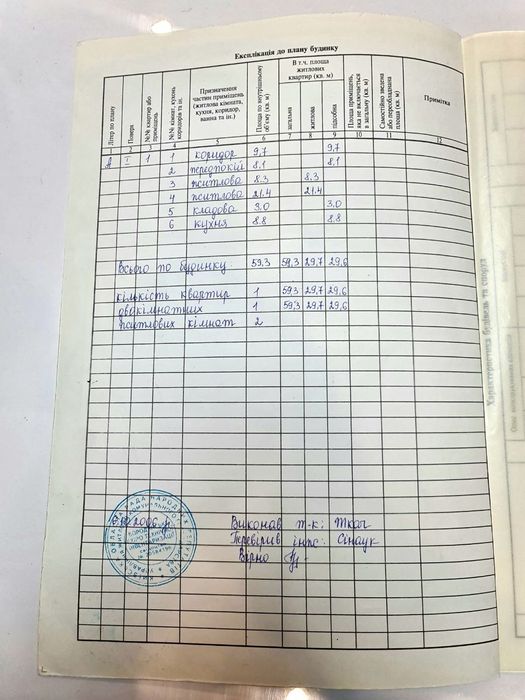 Експлікація до плану будинку
Літер по плану
Поверх
№№ квартир або приміщень
№№ кімнат, кухонь коридорів та ін.
Призначення частин приміщень (житлова кімната, кухня, коридор, ванна та ін.)
Площа по внутрішньому об'єму (кв. м)
В т.ч. площа житлових квартир (кв. м)
загальна
житлова
підсобна
Площа приміщень, яка не включається в загальну (кв. м)
Самостійно зведена або переобладнана площа (кв. м)
Примітка
1 2 3 4 5 6 7 8 9 10 11 12
А І 1 1 коридор 9,7 9,7
2 передпокій 8.1 8.1
3 житлова 8.3 8.3
4 житлова 21.4 21.4
5 кладова 3,0 3,0
6 кухня 8.8 8.8
Всього по будинку 59,3 59,3 29,7 29,6
кількість квартир 1 59,3 29,7 29,6
двокімнатних 1 59,3 29,7 29,6
житлових кімнат 2
2006 р.
Виконав т-к: Ткач
Перевірив інж: Сінаук
Вірно
Характеристика будівель та споруд